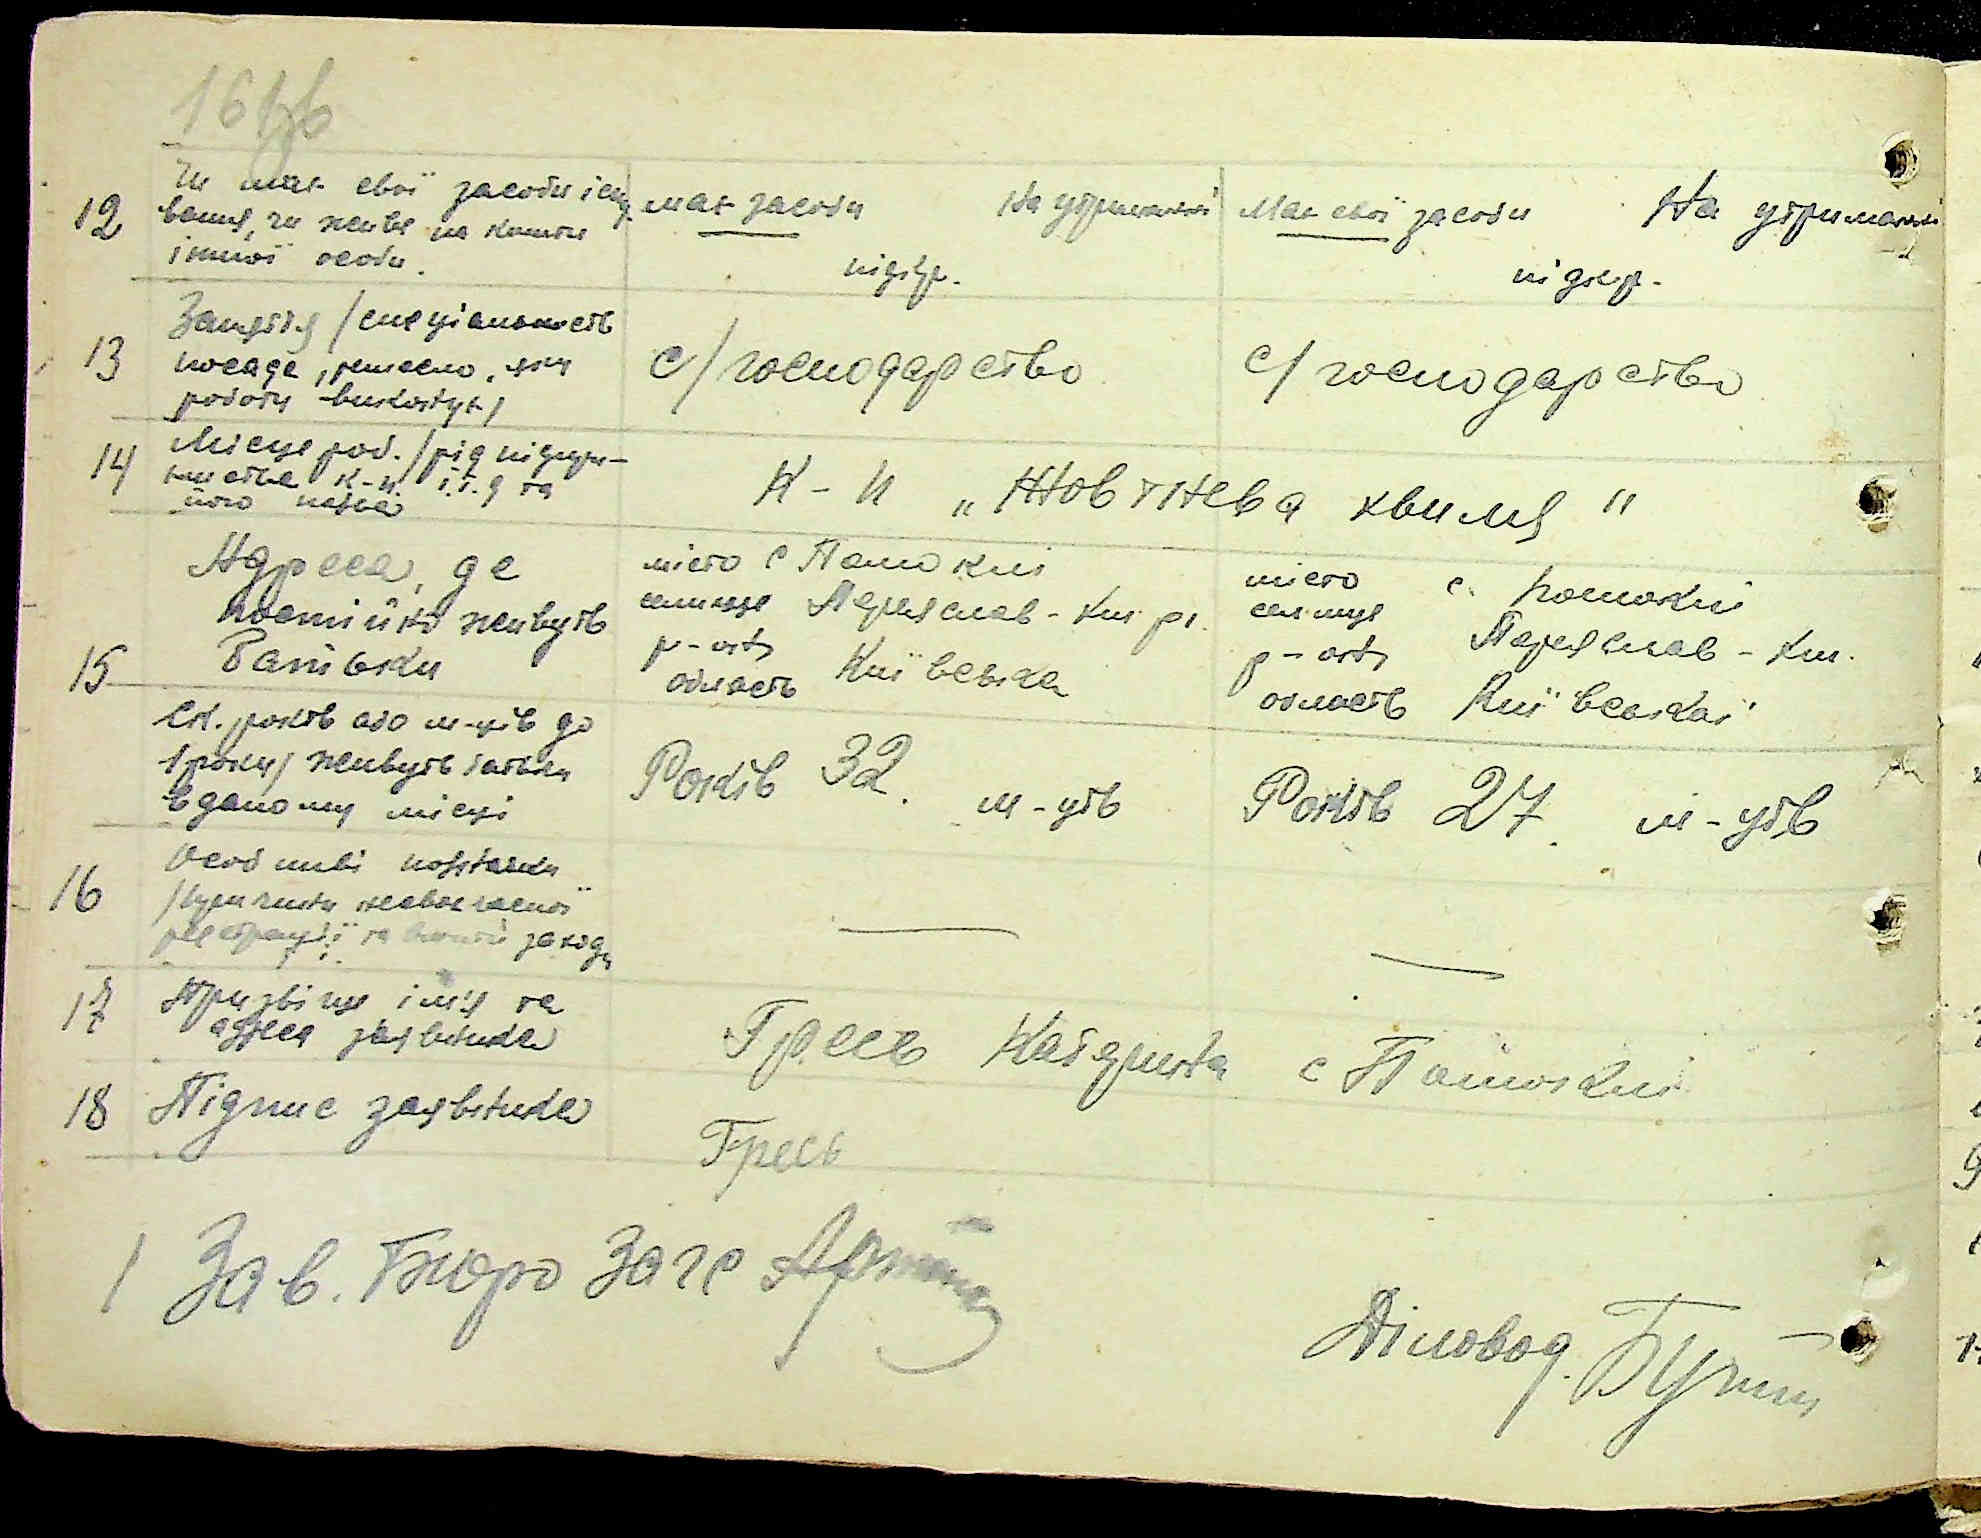 12 Чи має свої засоби існу має засоби На утриманні Має свої засоби На утриманні
вання, чи живе на кошти
іншої особи. підкр. підкр.
13 Заняття /спеціальність
посада, ремесло, яку с/господарство с/господарство
роботу виконує/
14 Місце роб. /рід підпри-
ємства к-п і.т.д та К-п „Жовтнева хвиля"
його назва
Адреса, де місто с Пашковки місто с. Пашковки
постійно живуть селище Переяслав-Хм. р. селище Переяслав-Хм.
15 Батьки р-он р-он
область Київська область Київської
Ск. років або м-ців до
1 року/ живуть батьки Років 32. м-ців Років 27. м-ців
в даному місці
16 Особливі
/причини несвоєчасної — —
реєстрації та заходи
17 Призвіще ім'я та Гресь с
адреса заявника
18 Підпис заявника Гресь
Зав. Бюро Загс
Діловод.